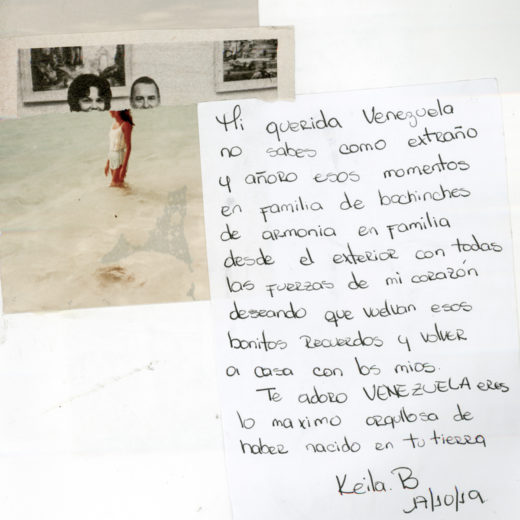 Mi querida Venezuela
no sabes como extraño
y añoro esos momentos
en familia de bochinches
de armonia en familia
desde el exterior con todas
las fuerzas de mi corazón
deseando que vuelvan esos
bonitos recuerdos y volver
a casa con los mios.
Te adoro VENEZUELA eres
lo maximo orgullosa de
haber nacido en tu tierra
Keila. B
17/10/19